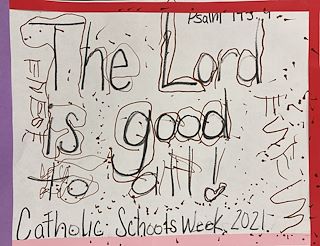 Psalm 145:9
The Lord
is good
to all!
Catholic Schools Week, 2021